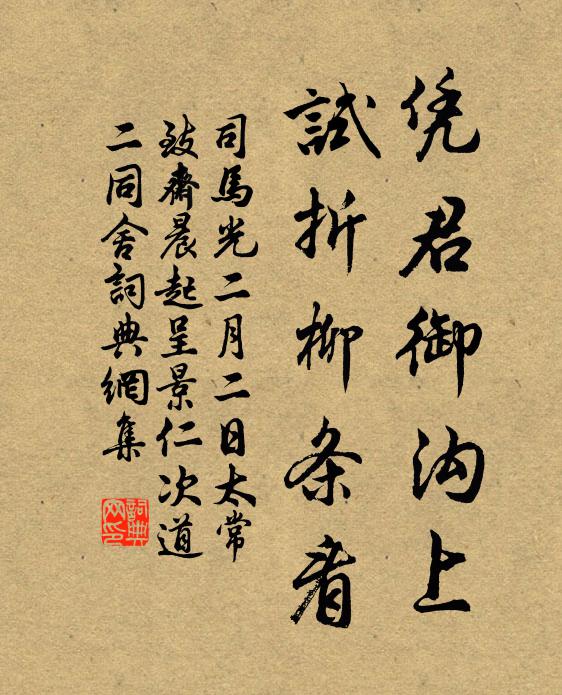 凭君御沟上
試折柳条看
司馬光二月二日太常
致齋晨起呈景仁次道
二同舍詞典網集
詞典
网印